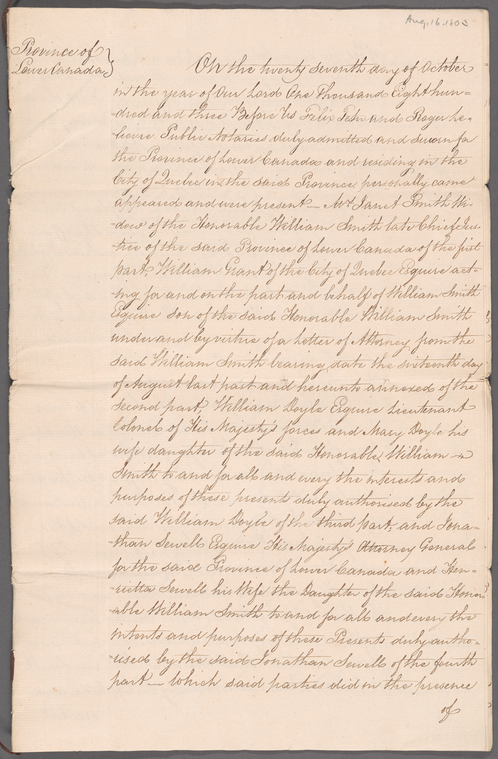 Aug. 16. 1803
Province of
Lower Canada
On the twenty seventh day of October
in the year of Our Lord One Thousand Eight hun-
dred and three Before Us Felix Tetu and Roger Le-
lievre Public Notaries duly admitted and sworn for
the Province of Lower Canada and residing in the
City of Quebec in the said Province personally came
appeared and were present — Mrs Janet Smith Wi-
dow of the Honorable William Smith late Chief Jus-
tice of the said Province of Lower Canada of the first
part, William Grant of the City of Quebec Esquire act-
ing for and on the part and behalf of William Smith
Esquire son of the said Honorable William Smith
under and by virtue of a Letter of Attorney from the
said William Smith bearing date the sixteenth day
of August last past and hereunto annexed of the
second part, William Doyle Esquire Lieutenant
Colonel of His Majesty's forces and Mary Doyle his
wife daughter of the said Honorable William
Smith to and for all and every the interests and
purposes of these presents duly authorised by the
said William Doyle of the third part, and Jona-
than Sewell Esquire His Majesty's Attorney General
for the said Province of Lower Canada and Hen-
rietta Sewell his Wife the Daughter of the said Honor-
able William Smith to and for all and every the
intents and purposes of these Presents duly autho-
rised by the said Jonathan Sewell of the fourth
part — which said parties did in the presence
of